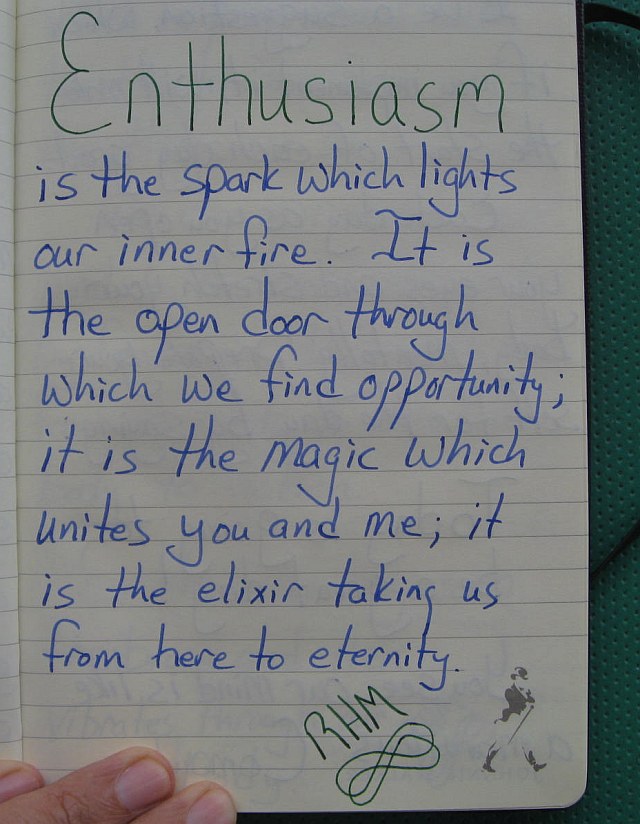 Enthusiasm
is the spark which lights
our inner fire. It is
the open door through
which we find opportunity;
it is the magic which
unites you and me; it
is the elixir taking us
from here to eternity.
RHM